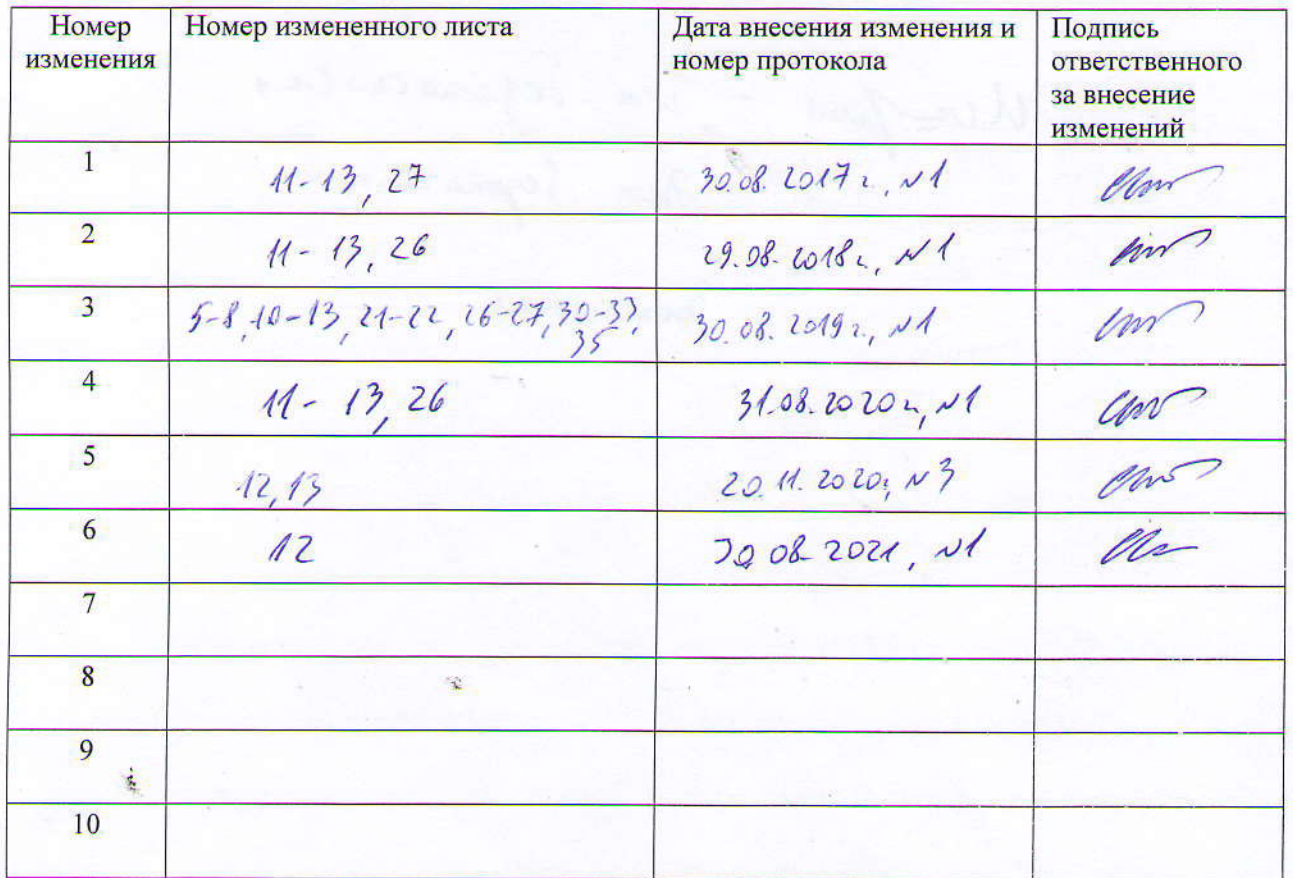 Номер изменения Номер измененного листа Дата внесения изменения и номер протокола Подпись ответственного за внесение изменений
1 11-13, 27 30.08.2017 г., №1
2 11-13, 26 29.08.2018 г., №1
3 5-8, 10-13, 21-22, 26-27, 30-33, 35 30.08.2019 г., №1
4 11-13, 26 31.08.2020 г, №1
5 12, 13 20.11.2020г, №3
6 12 30 08-2021, №1
7
8
9
10